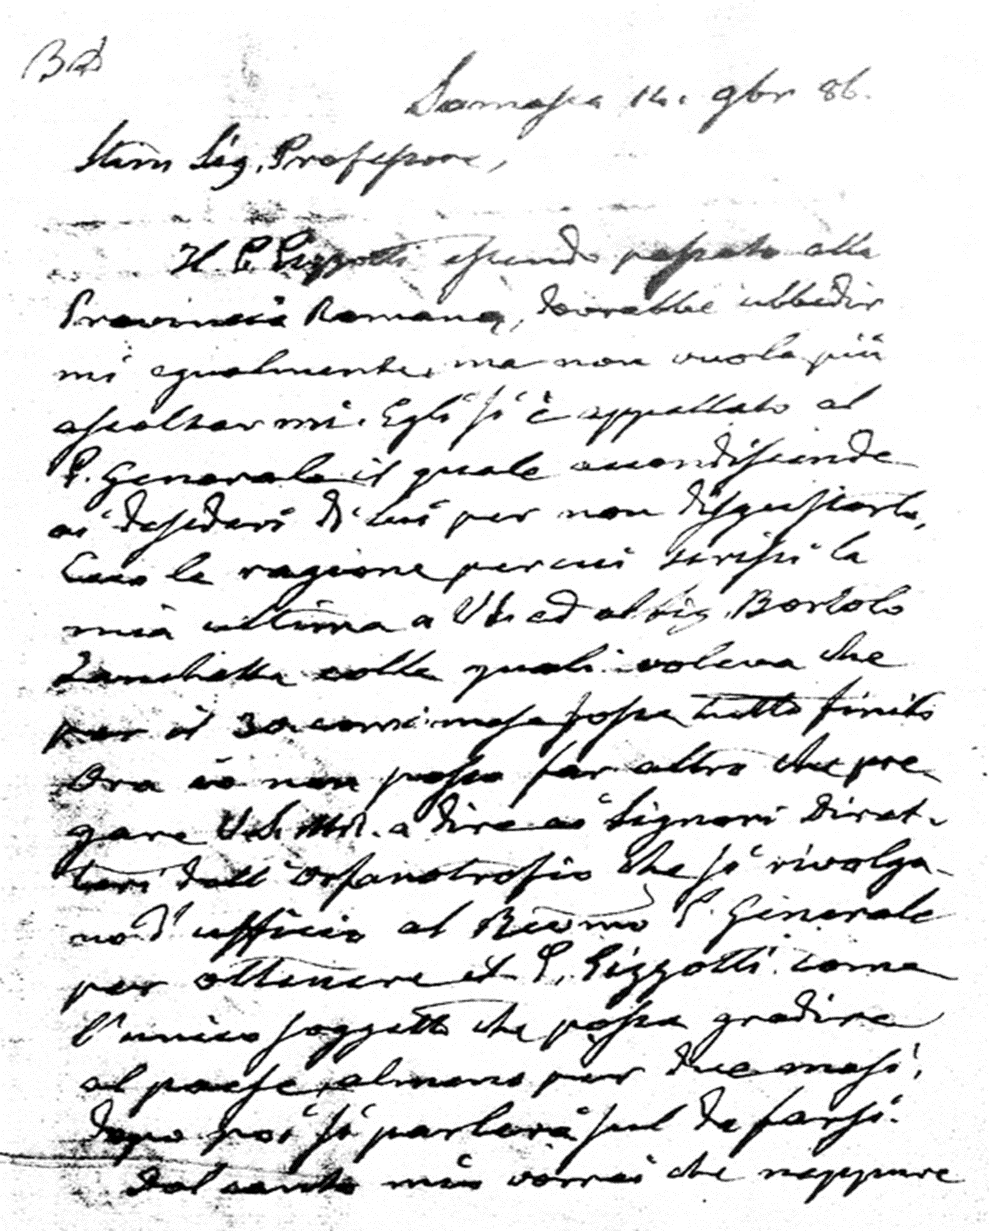 BD
Somasca 14. 9br 86.
Stim Sig. Professore,
Il P. Gizzotti essendo passato alla
Provincia Romana, dovrebbe ubbedir
mi egualmente, ma non vuole più
ascoltarmi. Egli si è appellato al
P. Generale il quale accondiscende
ai desideri di lui per non disgustarlo.
Ecco la ragione per cui scrissi la
mia ultima a VS. ed al Sig. Bortolo
Zanchetta colle quali voleva che
per il 30 corr. mese fosse tutto finito
Ora io non posso far altro che pre
gare V. S. Ill. a dire ai Signori Diret-
tori dell'Orfanotrofio che si rivolga-
no d'ufficio al Rev.mo P. Generale
per ottenere il P. Gizzotti come
l'unico soggetto che possa gradire
al paese, almeno per due mesi,
dopo poi si parlerà sul da farsi.
Dal canto mio vorrei che neppure